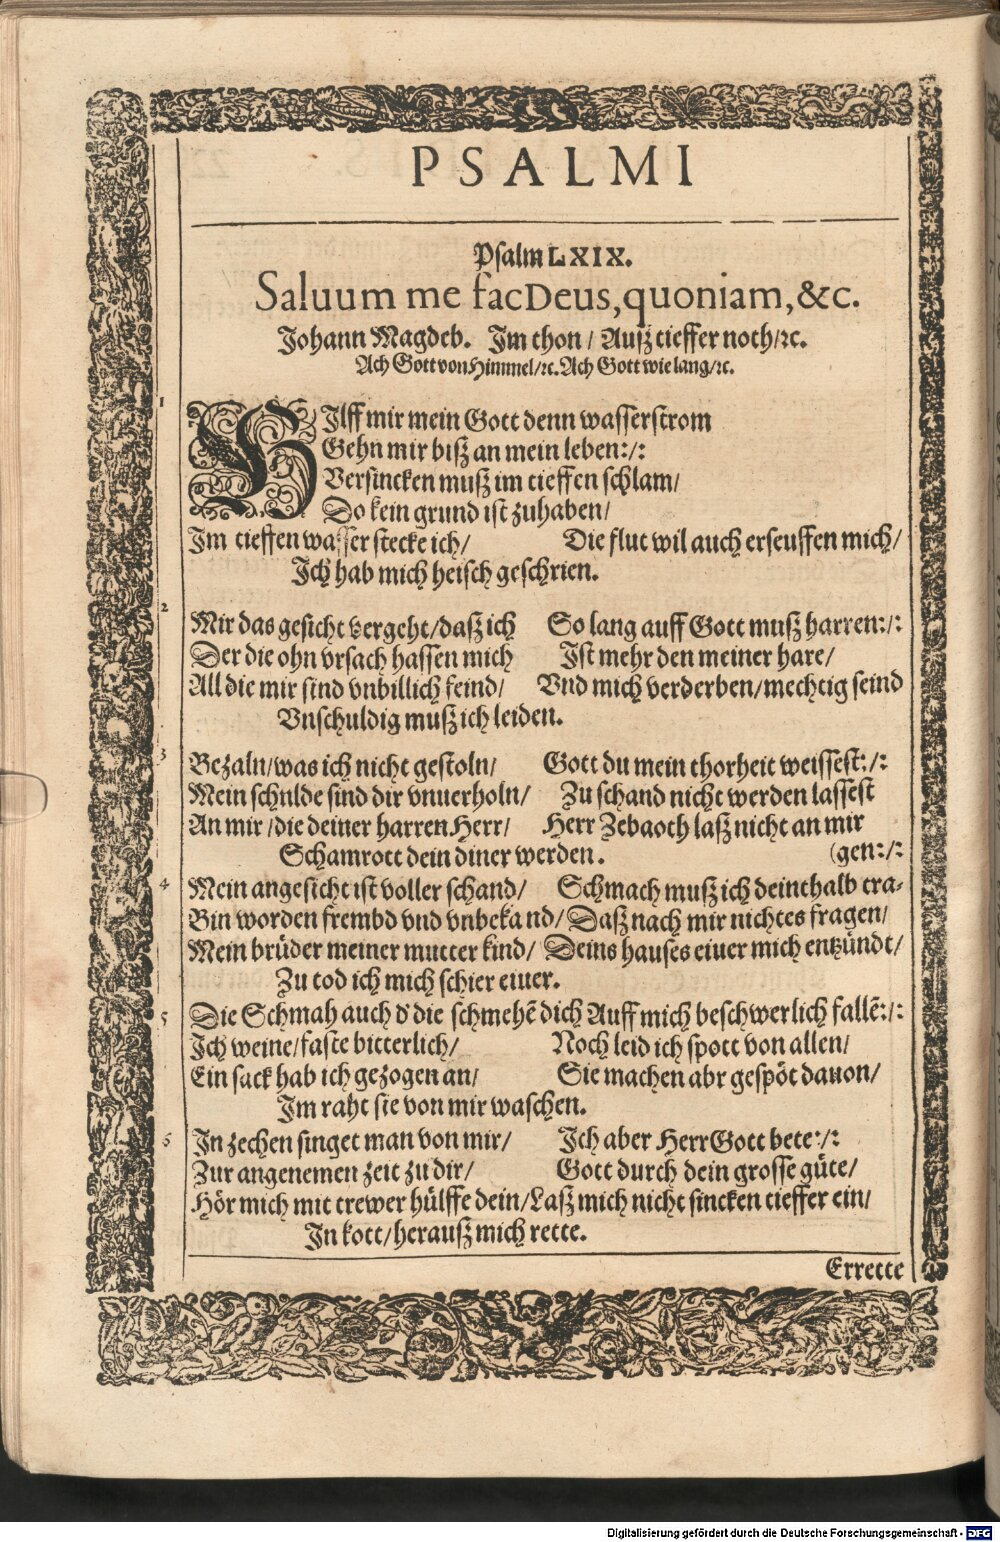 PSALMI
Psalm LXIX.
Saluum me fac Deus, quoniam, &c.
Johann Magdeb. Im thon / Auß tieffer noth/ꝛc.
Ach Gott von Himmel/ꝛc. Ach Gott wie lang/ꝛc.
1 HIlff mir mein Gott denn wasserstrom
Gehn mir biß an mein leben:/:
Versincken muß im tieffen schlam/
Do kein grund ist zuhaben/
Im tieffen wasser stecke ich/ Die flut wil auch erseuffen mich/
Ich hab mich heisch geschrien.
2 Mir das gesicht vergeht/daß ich So lang auff Gott muß harren:/:
Der die ohn vrsach hassen mich Ist mehr den meiner hare/
All die mir sind vnbillich feind/ Vnd mich verderben/mechtig seind
Vnschuldig muß ich leiden.
3 Bezaln/was ich nicht gestoln/ Gott du mein thorheit weissest:/:
Mein schulde sind dir vnuerholn/ Zu schand nicht werden lassest
An mir/die deiner harren Herr/ Herr Zebaoth laß nicht an mir
Schamrott dein diner werden. (gen:/:
4 Mein angesicht ist voller schand/ Schmach muß ich deinthalb tra-
Bin worden frembd vnd vnbekand/ Daß nach mir nichtes fragen/
Mein brüder meiner mutter kind/ Deins hauses eiuer mich entzündt/
Zu tod ich mich schier eiuer.
5 Die Schmah auch d' die schmehẽ dich Auff mich beschwerlich fallẽ:/:
Ich weine/faste bitterlich/ Noch leid ich spott von allen/
Ein sack hab ich gezogen an/ Sie machen abr gespöt dauon/
Im raht sie von mir waschen.
6 In zechen singet man von mir/ Ich aber Herr Gott bete:/:
Zur angenemen zeit zu dir/ Gott durch dein grosse güte/
Hör mich mit trewer hülffe dein/ Laß mich nicht sincken tieffer ein/
In kott/herauß mich rette.
Errette
Digitalisierung gefördert durch die Deutsche Forschungsgemeinschaft - DFG